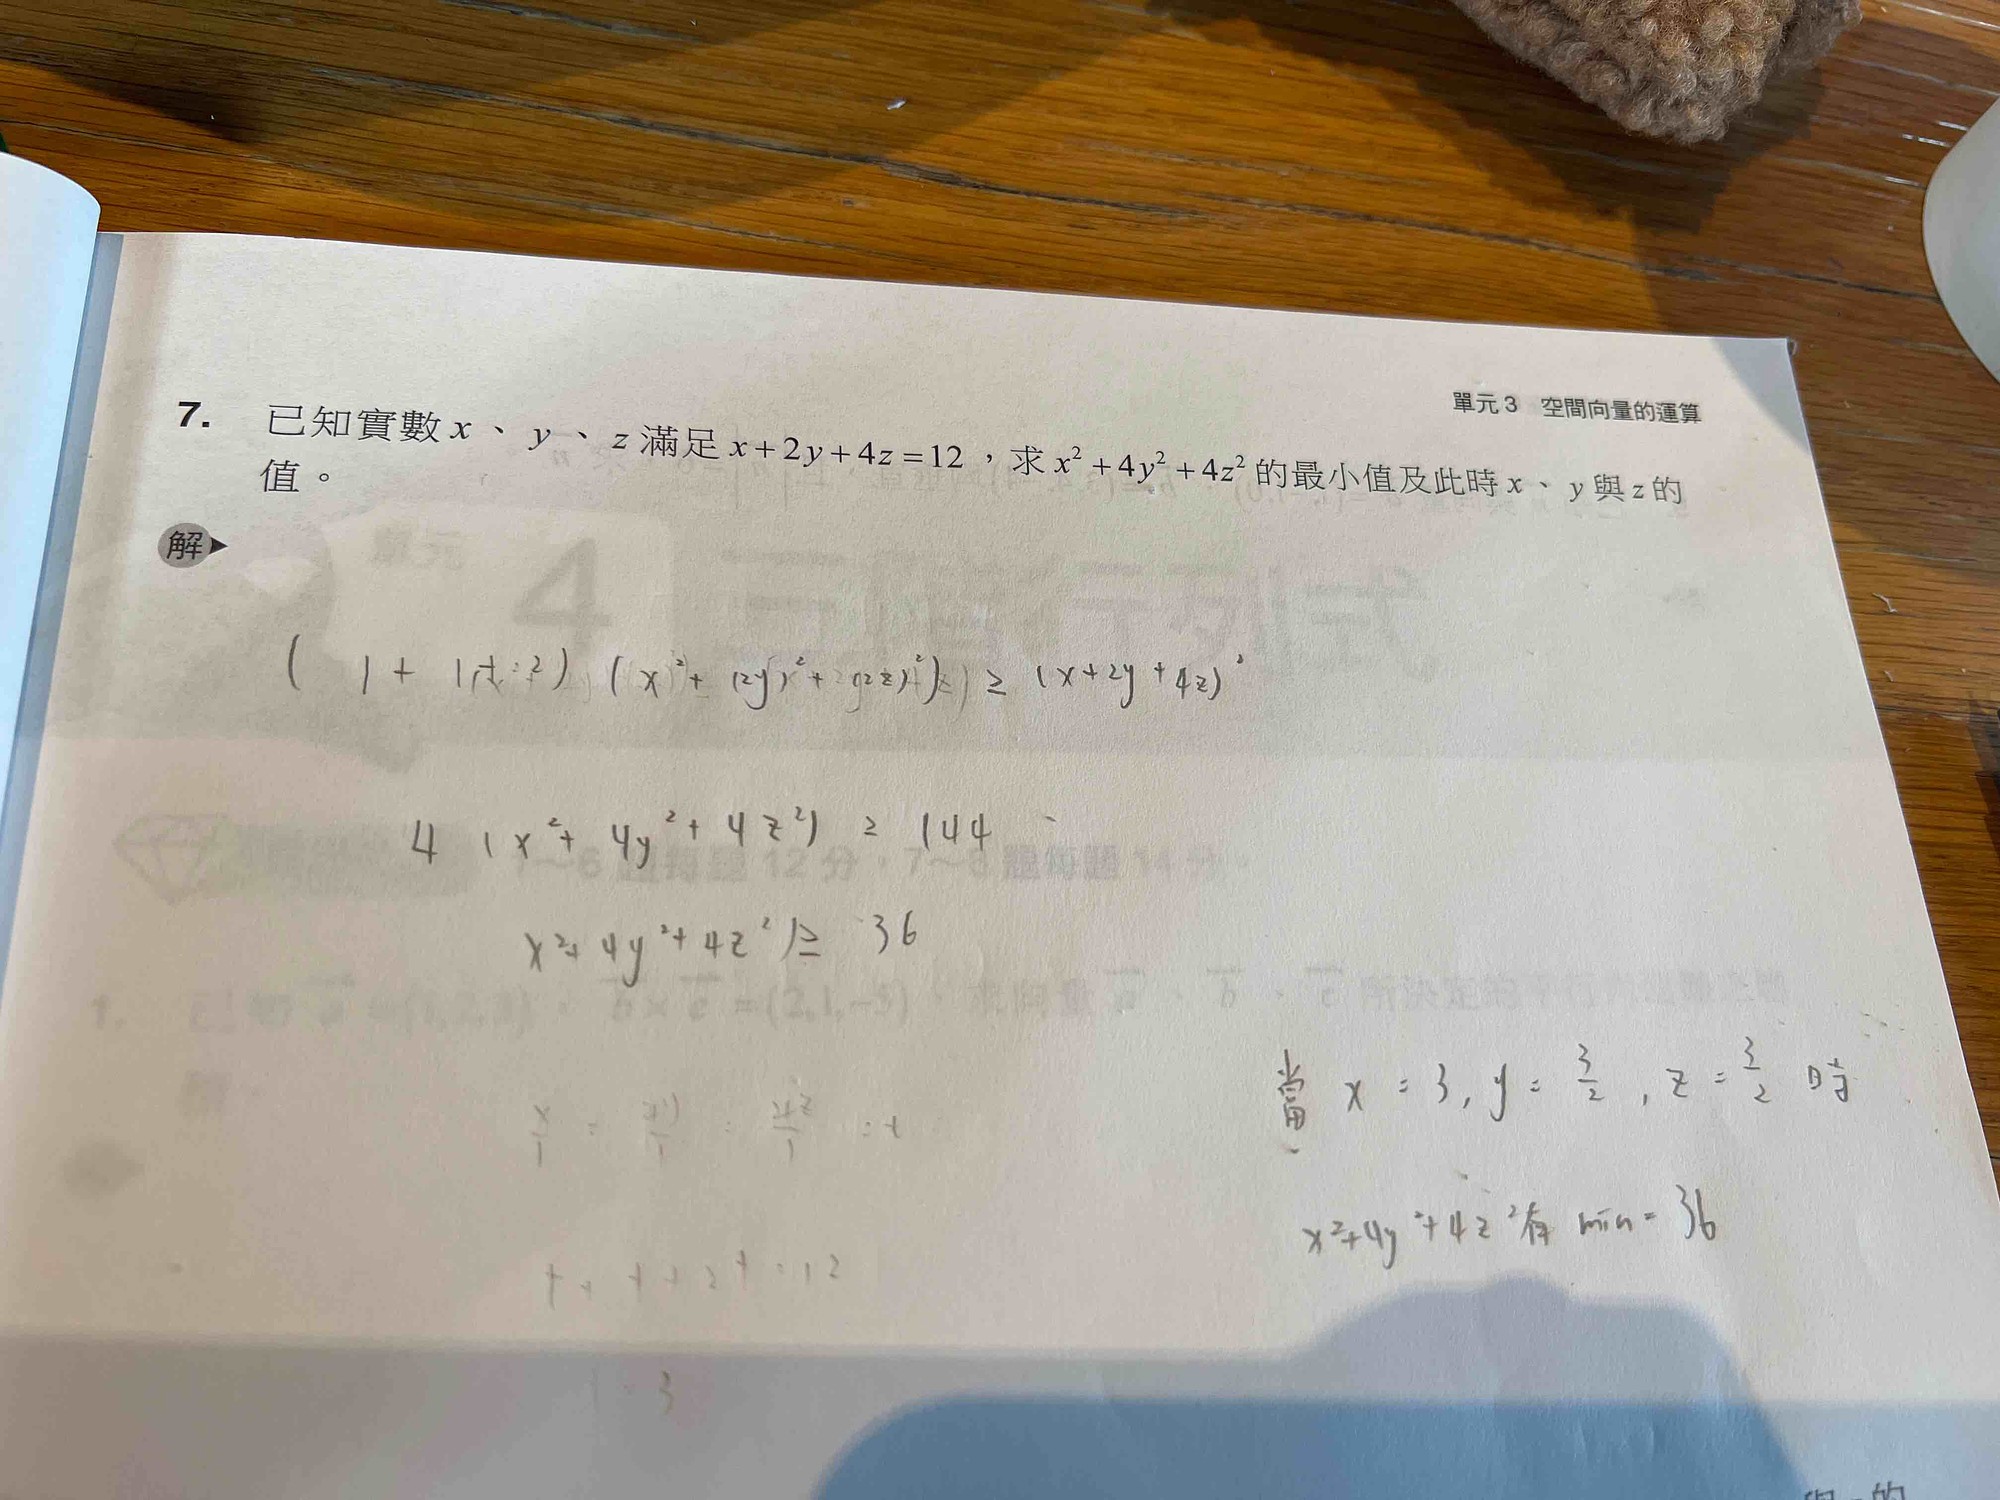 單元 3 空間向量的運算
7. 已知實數 x 、 y 、 z 滿足 x + 2y + 4z = 12 ，求 x² + 4y² + 4z² 的最小值及此時 x 、 y 與 z 的
值。
解
(x² + (2y)² + (2z)²) ≥ (x+2y+4z)²
4 (x² + 4y² + 4z²) ≥ 144
x² + 4y² + 4z²) ≥ 36
當 x = 3, y = 3/2 , z = 3/2 時
t + t + 2t = 12
x²+4y²+4z² 有 min = 36
3